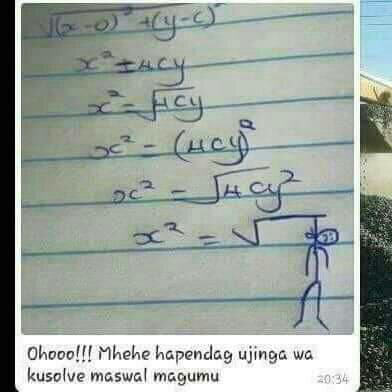 √(x-0)² +(y-c)²
x² ± 4cy
x² = √4cy
x² = (4cy)²
x² = √4cy²
x² = √
Ohooo!!! Mhehe hapendag ujinga wa
kusolve maswal magumu
20:34